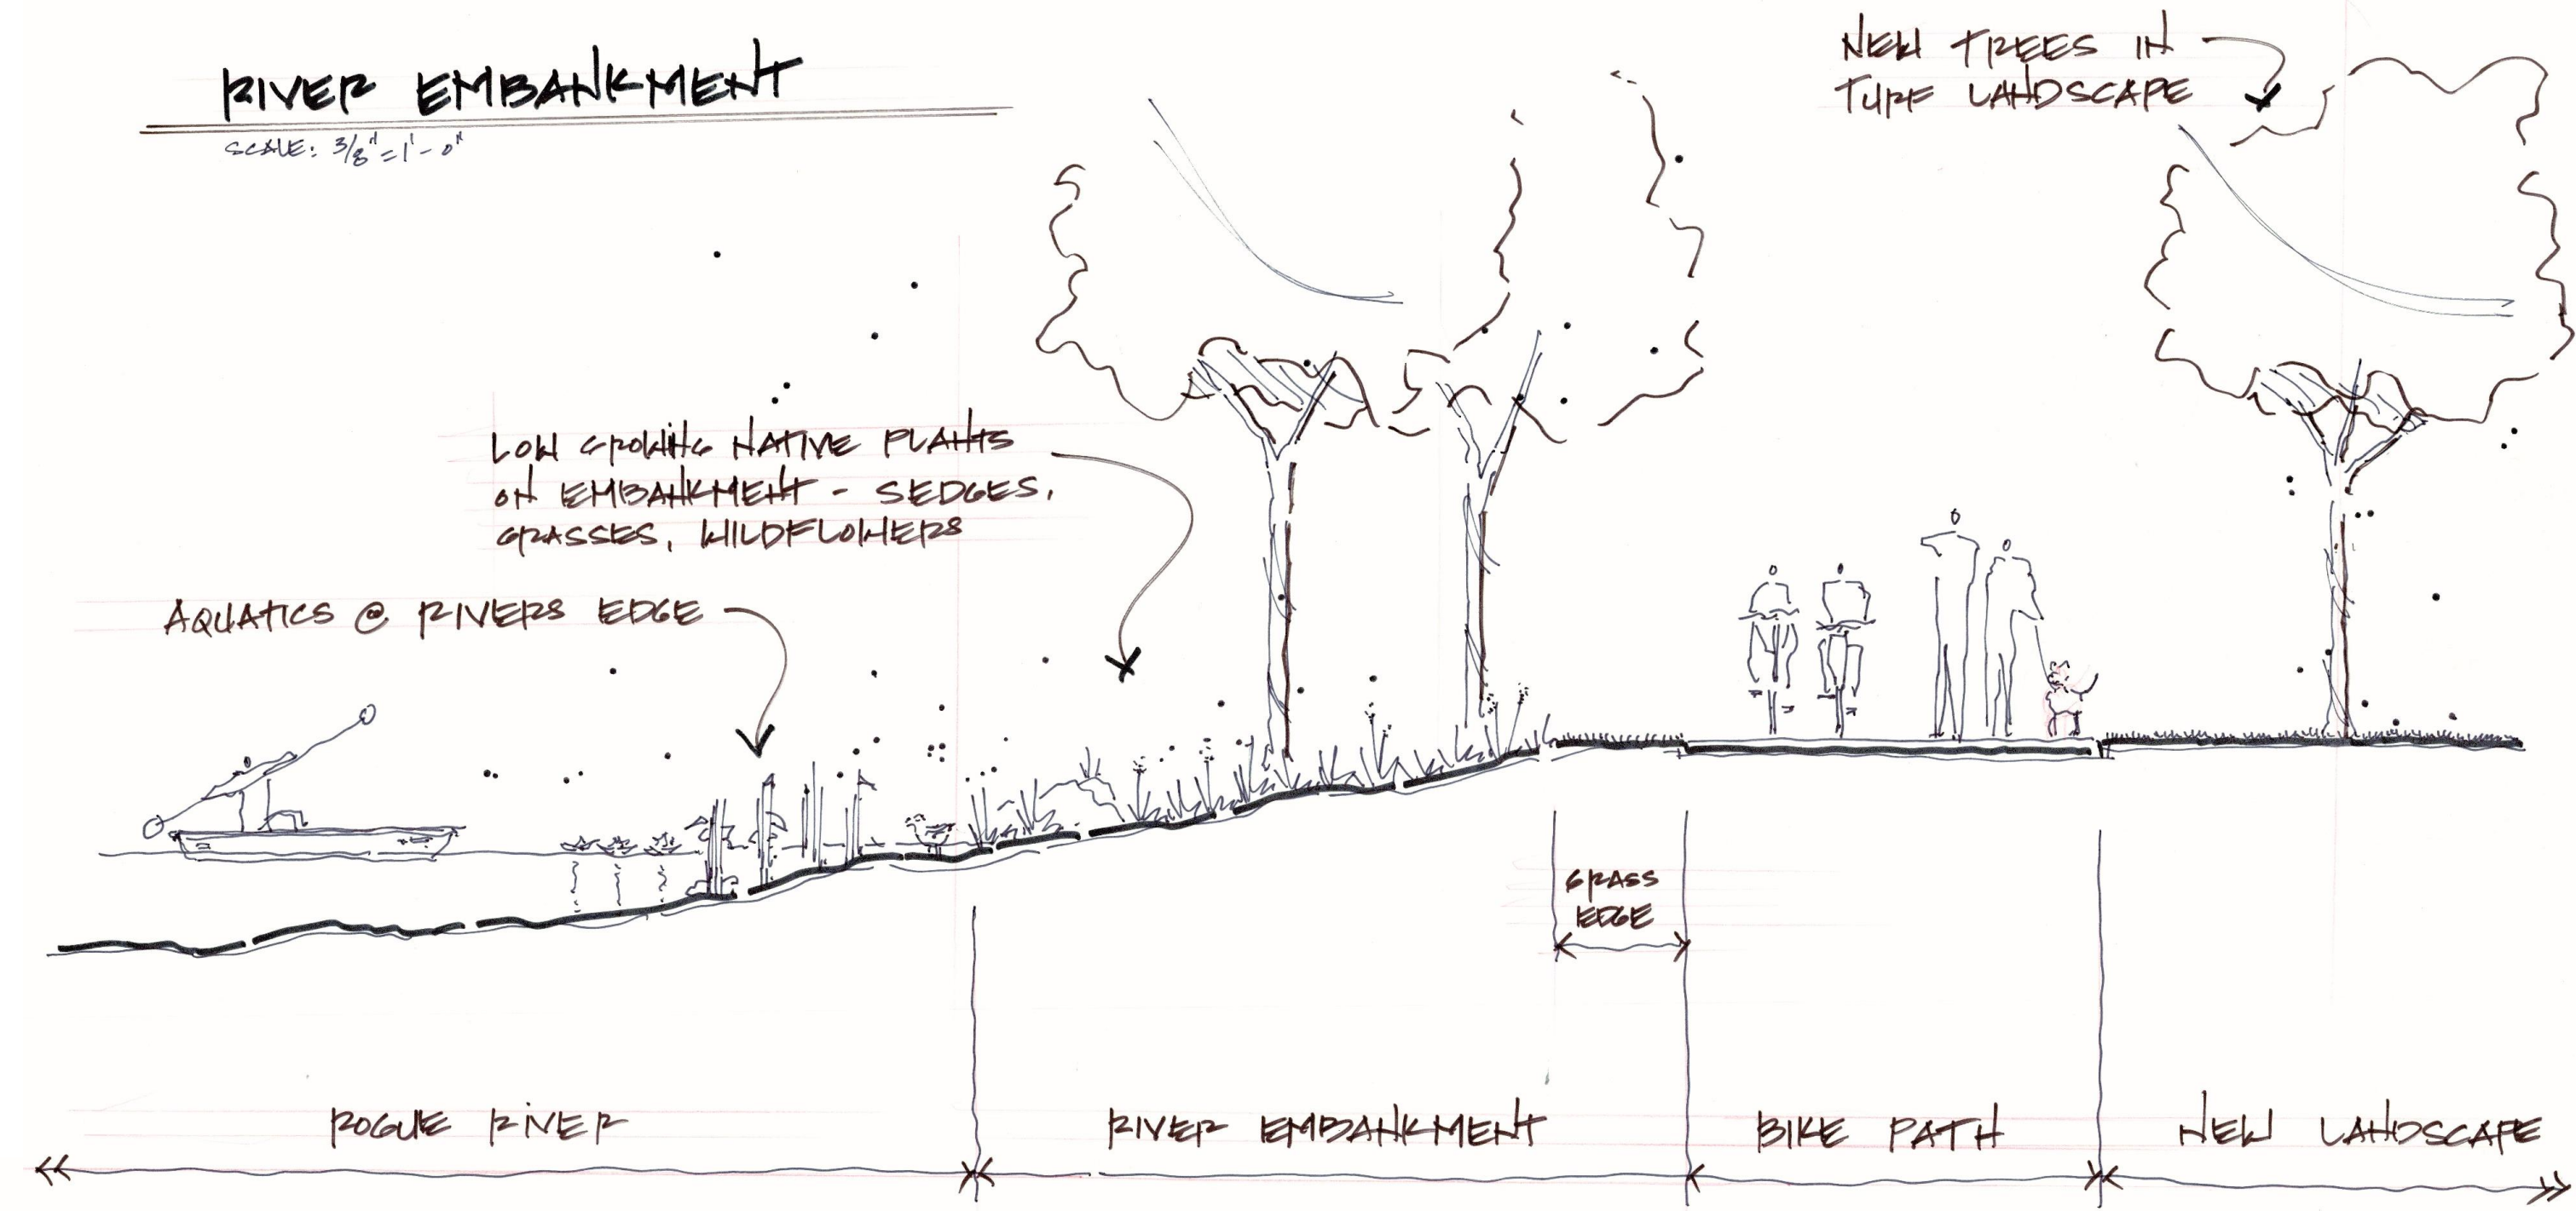 RIVER EMBANKMENT
SCALE: 3/8" = 1' - 0"
NEW TREES IN
TURF LANDSCAPE
LOW GROWING NATIVE PLANTS
ON EMBANKMENT - SEDGES,
GRASSES, WILDFLOWERS
AQUATICS @ RIVERS EDGE
GRASS
EDGE
ROGUE RIVER
RIVER EMBANKMENT
BIKE PATH
NEW LANDSCAPE